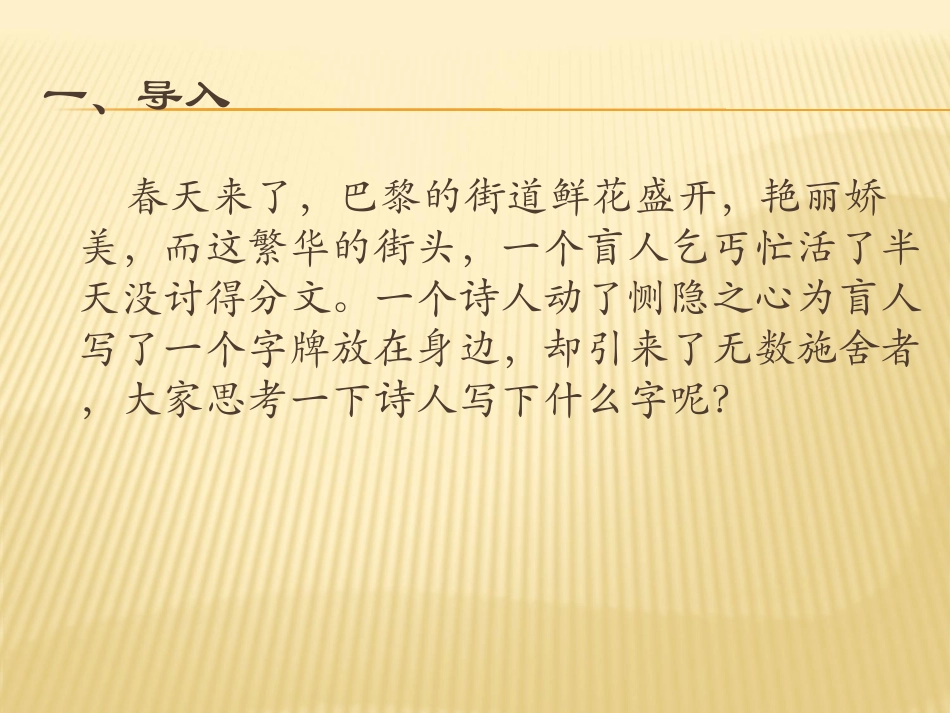 一、导入
春天来了，巴黎的街道鲜花盛开，艳丽娇
美，而这繁华的街头，一个盲人乞丐忙活了半
天没讨得分文。一个诗人动了恻隐之心为盲人
写了一个字牌放在身边，却引来了无数施舍者
，大家思考一下诗人写下什么字呢？